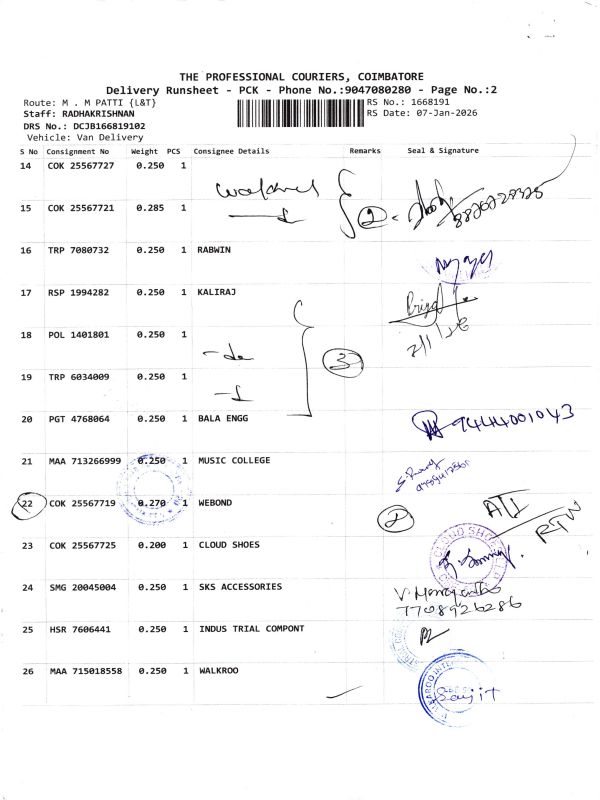 THE PROFESSIONAL COURIERS, COIMBATORE
Delivery Runsheet - PCK - Phone No.:9047080280 - Page No.:2
Route: M . M PATTI {L&T}
RS No.: 1668191
Staff: RADHAKRISHNAN
RS Date: 07-Jan-2026
DRS No.: DCJB166819102
Vehicle: Van Delivery
S No Consignment No Weight PCS Consignee Details Remarks Seal & Signature
14 COK 25567727 0.250 1
15 COK 25567721 0.285 1
2
16 TRP 7080732 0.250 1 RABWIN
17 RSP 1994282 0.250 1 KALIRAJ
18 POL 1401801 0.250 1
3
19 TRP 6034009 0.250 1
20 PGT 4768064 0.250 1 BALA ENGG 9444001043
21 MAA 713266999 0.250 1 MUSIC COLLEGE
22 COK 25567719 0.270 1 WEBOND
RTW
23 COK 25567725 0.200 1 CLOUD SHOES
CLOUD SHOES
24 SMG 20045004 0.250 1 SKS ACCESSORIES
7708926286
25 HSR 7606441 0.250 1 INDUS TRIAL COMPONT
26 MAA 715018558 0.250 1 WALKROO